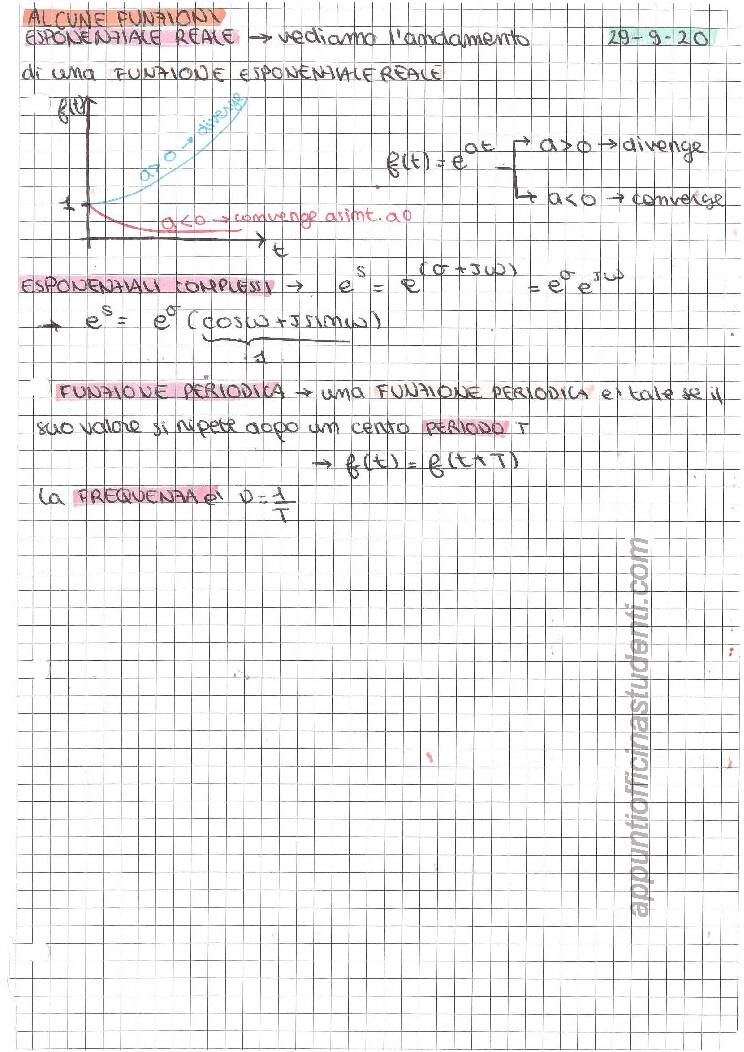 ALCUNE FUNZIONI
ESPONENZIALE REALE → vediamo l'andamento 29-9-20
di una FUNZIONE ESPONENZIALE REALE
f(t)
a>0 → diverge
f(t) = e^{at} → a>0 → diverge
↳ a<0 → converge
1
a<0 → converge asint. a 0
t
ESPONENZIALI COMPLESSI → e^s = e^{(σ+Jω)} = e^σ e^{Jω}
→ e^s = e^σ (cosω + J sinω)
1
FUNZIONE PERIODICA → una FUNZIONE PERIODICA e' tale se il
suo valore si ripete dopo un certo PERIODO T
→ f(t) = f(t+T)
la FREQUENZA e' ν = 1/T
appuntiofficinastudenti.com